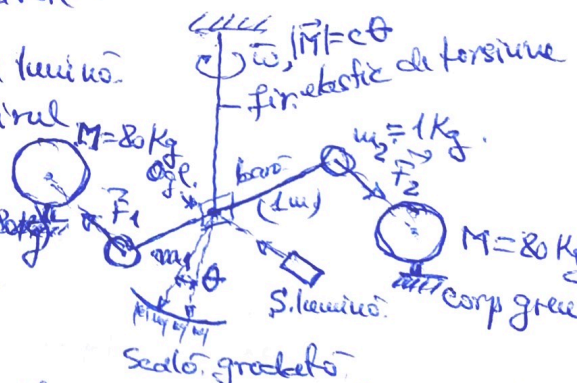 ω, |M|=cθ
lumină.
fir elastic de torsiune
irul
M=80 Kg
m₂=1Kg.
Ogl.
bară
(1m)
F₁
F₂
m₁
θ
M=80 Kg
S.luminő.
corp greu
Scală gradată